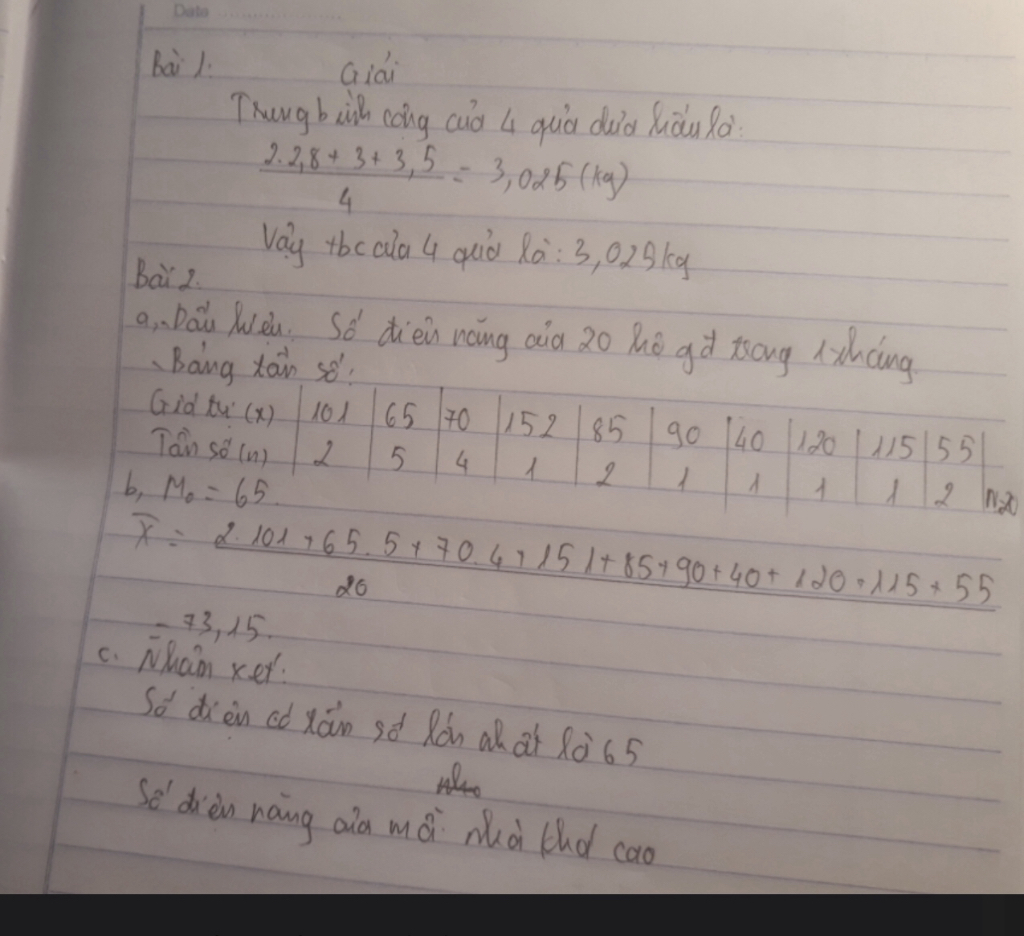 Date
Bài 1: Giải
Trung bình cộng của 4 quả dưa hấu là:
2.2,8 + 3 + 3,5 / 4 = 3,025 (kg)
Vậy tbc của 4 quả là: 3,025kg
Bài 2.
a, Dấu hiệu. Số điện năng của 20 hộ gđ trong 1 tháng.
Bảng tần số:
Giá trị (x) | 101 | 65 | 70 | 152 | 85 | 90 | 40 | 120 | 115 | 55
Tần số (n) | 2 | 5 | 4 | 1 | 2 | 1 | 1 | 1 | 1 | 2 | N=20
b, M₀ = 65.
X̄ = 2.101 + 65.5 + 70.4 + 151 + 85 + 90 + 40 + 120 + 115 + 55 / 20
= 73,15.
c. Nhận xét:
Số điện có tần số lớn nhất là 65
Số điện năng của mỗi nhà khá cao